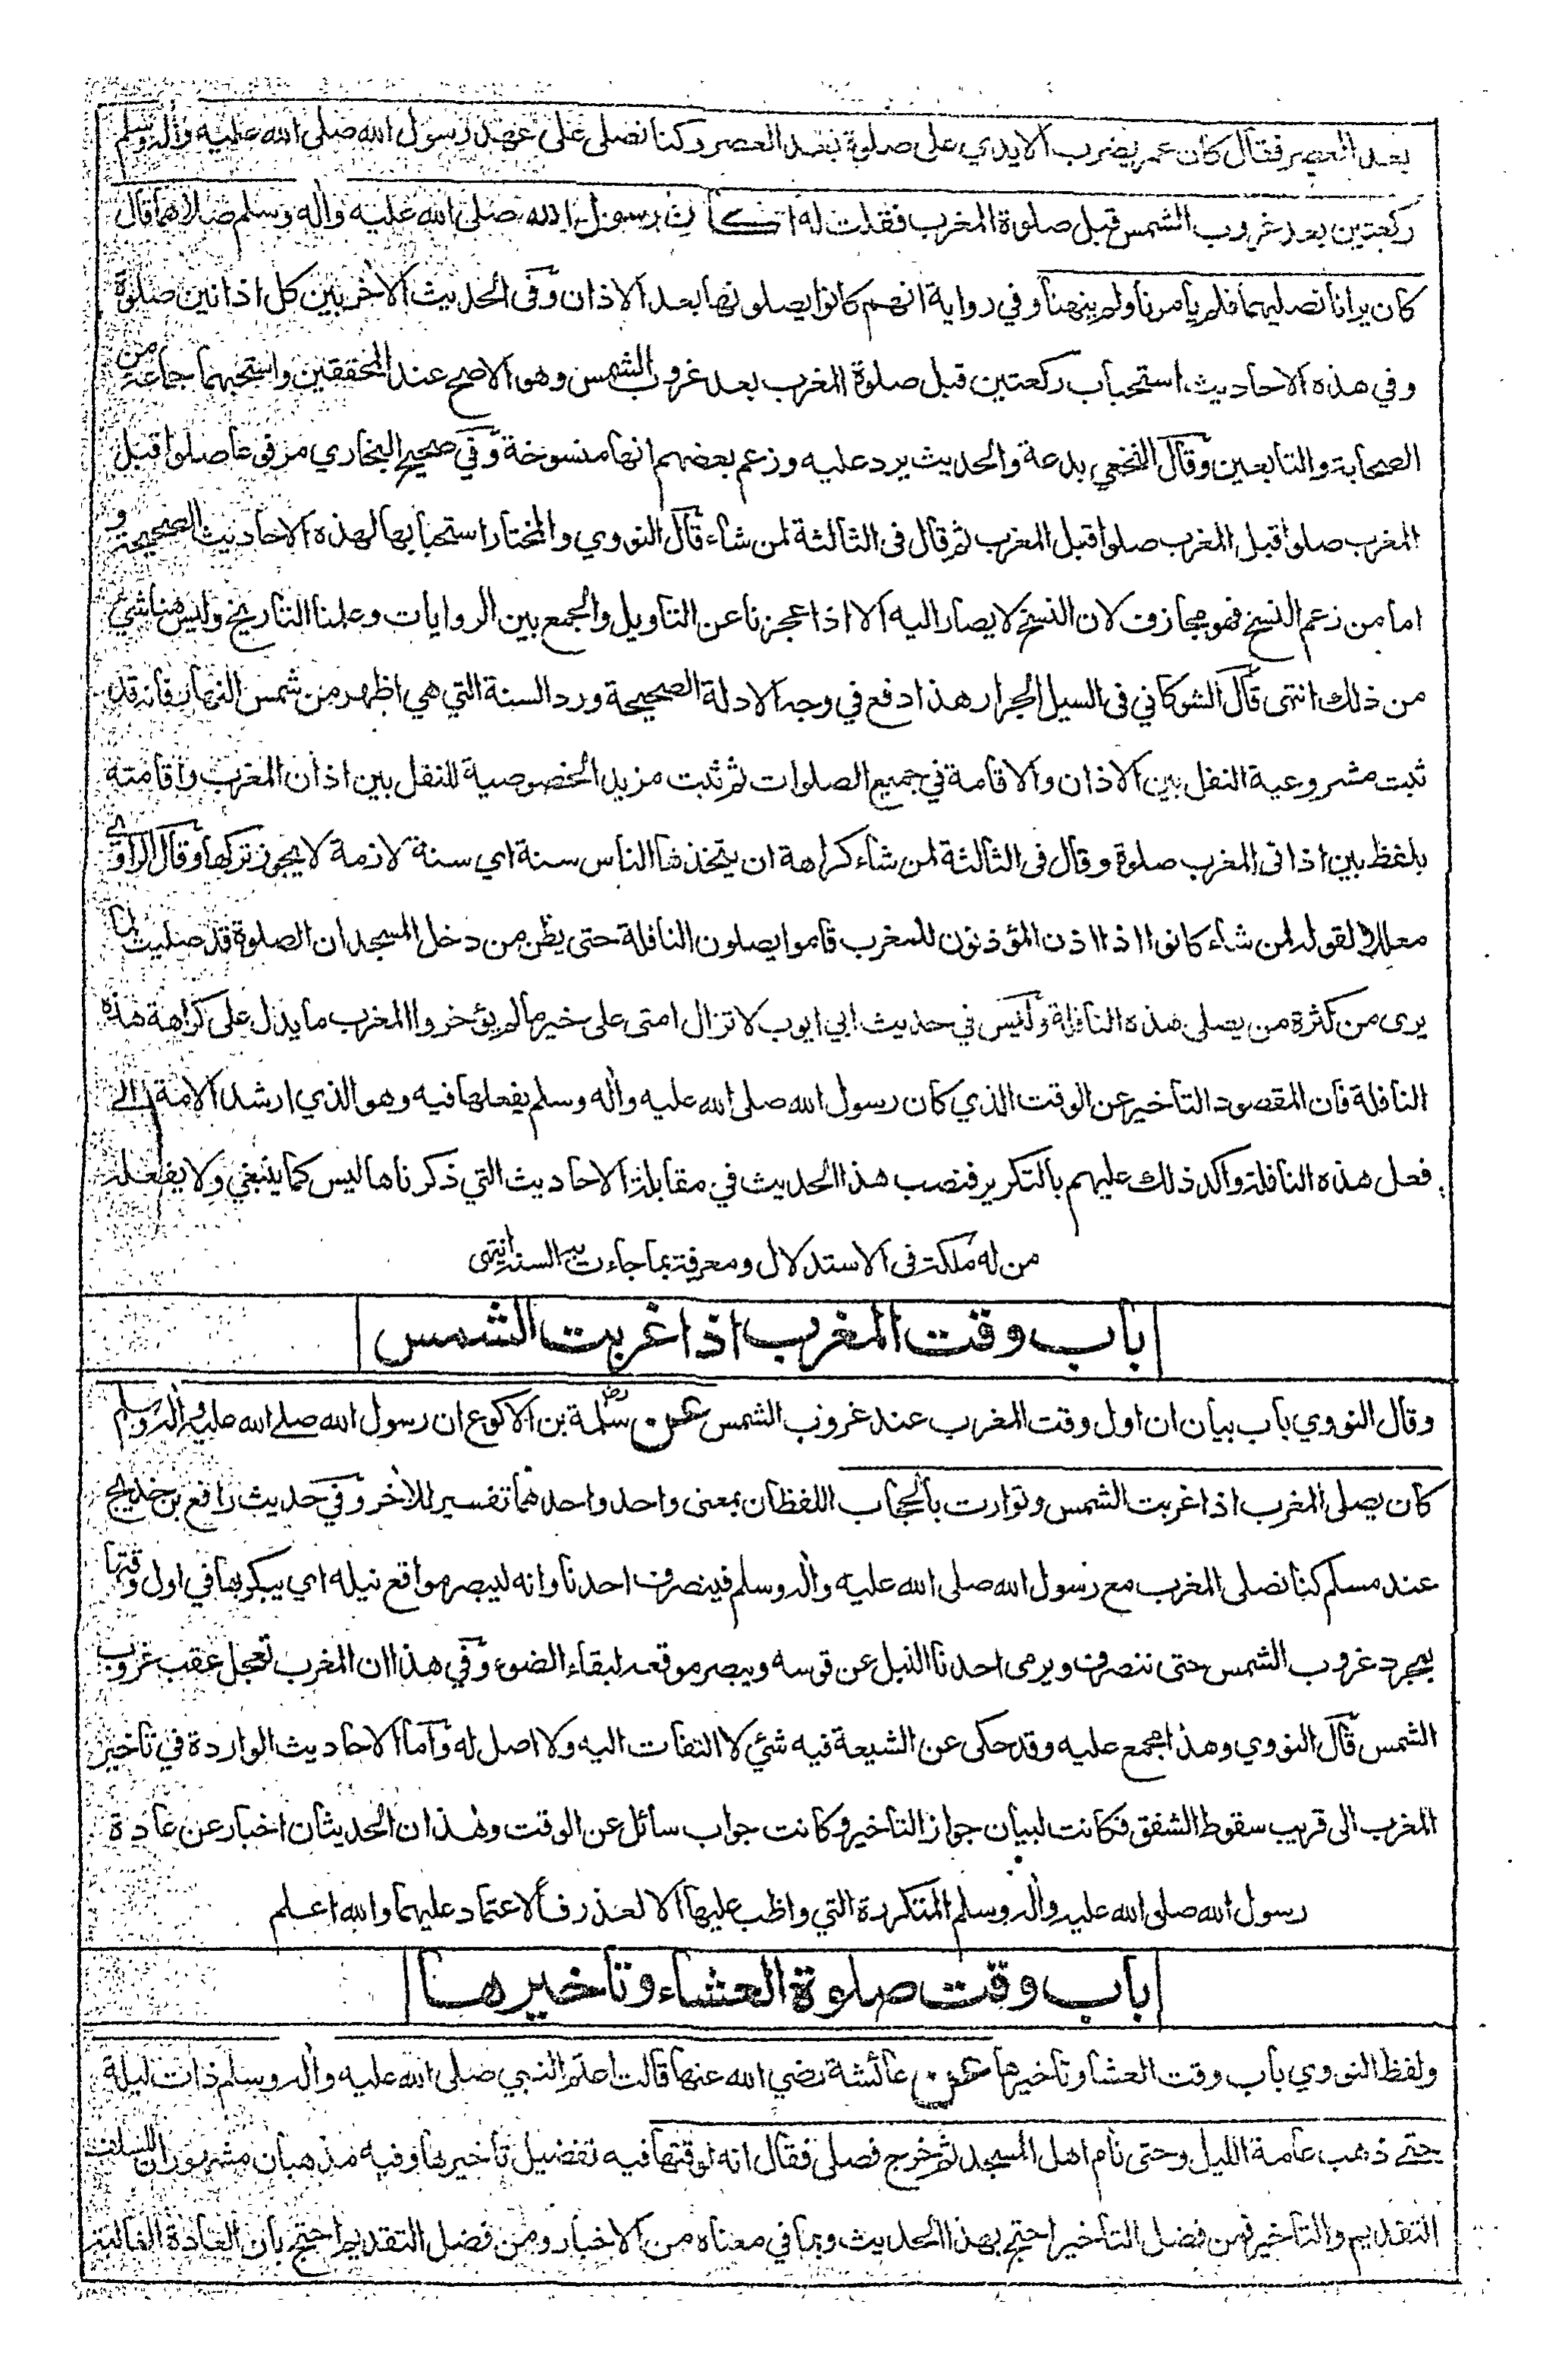 بعد العصر فقال كان عمر يضرب الايدي على صلوة بعد العصر وكنا نصلى على عهد رسول الله صلى الله عليه واله وسلم
ركعتين بعد غروب الشمس قبل صلوة المغرب فقلت له اكان رسول الله صلى الله عليه واله وسلم صلاهما قال
كان يرانا نصليهما فلم يأمرنا ولم ينهنا وفي رواية انهم كانوا يصلونها بعد الاذان وفى الحديث الاخر بين كل اذانين صلوة
وفي هذه الاحاديث استحباب ركعتين قبل صلوة المغرب بعد غروب الشمس وهو الاصح عند المحققين واستحبهما جماعة من
الصحابة والتابعين وقال النخعي بدعة والحديث يرد عليه وزعم بعضهم انها منسوخة وفي صحيح البخاري مرفوعا صلوا قبل
المغرب صلوا قبل المغرب صلوا قبل المغرب ثم قال فى الثالثة لمن شاء قال النووي والمختار استحبابها لهذه الاحاديث الصحيحة و
اما من زعم النسخ فهو مجازف لان النسخ لا يصار اليه الا اذا عجزنا عن التاويل والجمع بين الروايات وعلمنا التاريخ وليس هنا شيئ
من ذلك انتهى قال الشوكاني فى السيل الجرار هذا دفع في وجه الادلة الصحيحة ورد السنة التي هي اظهر من شمس النهار فانه قد
ثبت مشروعية النفل بين الاذان والاقامة في جميع الصلوات ثم ثبت مزيد الخصوصية للنفل بين اذان المغرب واقامته
بلفظ بين اذانى المغرب صلوة وقال فى الثالثة لمن شاء كراهة ان يتخذها الناس سنة اي سنة لازمة لا يجوز تركها وقال الراوي
معللا لقوله لمن شاء كانوا اذا اذن المؤذنون للمغرب قاموا يصلون النافلة حتى يظن من دخل المسجد ان الصلوة قد صليت لما
يرى من كثرة من يصلى هذه النافلة وليس في حديث ابي ايوب لا تزال امتى على خير ما لم يؤخروا المغرب ما يدل على كراهة هذه
النافلة فان المقصود التأخير عن الوقت الذي كان رسول الله صلى الله عليه واله وسلم يفعلها فيه وهو الذي ارشد الامة الى
فعل هذه النافلة واكد ذلك عليهم بالتكرير فنصب هذا الحديث في مقابلة الاحاديث التي ذكرناها ليس كما ينبغي ولا يفعله
من له ملكة فى الاستدلال ومعرفة بما جاءت به السنة انتهى
باب وقت المغرب اذا غربت الشمس
وقال النووي باب بيان ان اول وقت المغرب عند غروب الشمس عن سلمة رض بن الاكوع ان رسول الله صلى الله عليه واله وسلم
كان يصلى المغرب اذا غربت الشمس وتوارت بالحجاب اللفظان بمعنى واحد واحدهما تفسير للاخر وفي حديث رافع بن خديج
عند مسلم كنا نصلى المغرب مع رسول الله صلى الله عليه واله وسلم فينصرف احدنا وانه ليبصر مواقع نبله اي يبكر بها في اول وقتها
بمجرد غروب الشمس حتى ننصرف ويرمى احدنا النبل عن قوسه ويبصر موقعه لبقاء الضوء وفي هذا ان المغرب تعجل عقب غروب
الشمس قال النووي وهذا مجمع عليه وقد حكى عن الشيعة فيه شيئ لا التفات اليه ولا اصل له واما الاحاديث الواردة في تاخير
المغرب الى قريب سقوط الشفق فكانت لبيان جواز التاخير وكانت جواب سائل عن الوقت وهذان الحديثان اخبار عن عادة
رسول الله صلى الله عليه واله وسلم المتكررة التي واظب عليها الا لعذر فالاعتماد عليهما والله اعلم
باب وقت صلوة العشاء وتاخيرها
ولفظ النووي باب وقت العشا وتأخيرها عن عائشة رضي الله عنها قالت اعتم النبي صلى الله عليه واله وسلم ذات ليلة
حتى ذهب عامة الليل وحتى نام اهل المسجد ثم خرج فصلى فقال انه لوقتها فيه تفضيل تأخيرها وفيه مذهبان مشهوران للسلف
التقديم والتاخير فمن فضل التأخير احتج بهذا الحديث وبما في معناه من الاخبار ومن فضل التقديم احتج بان العادة الغالبة